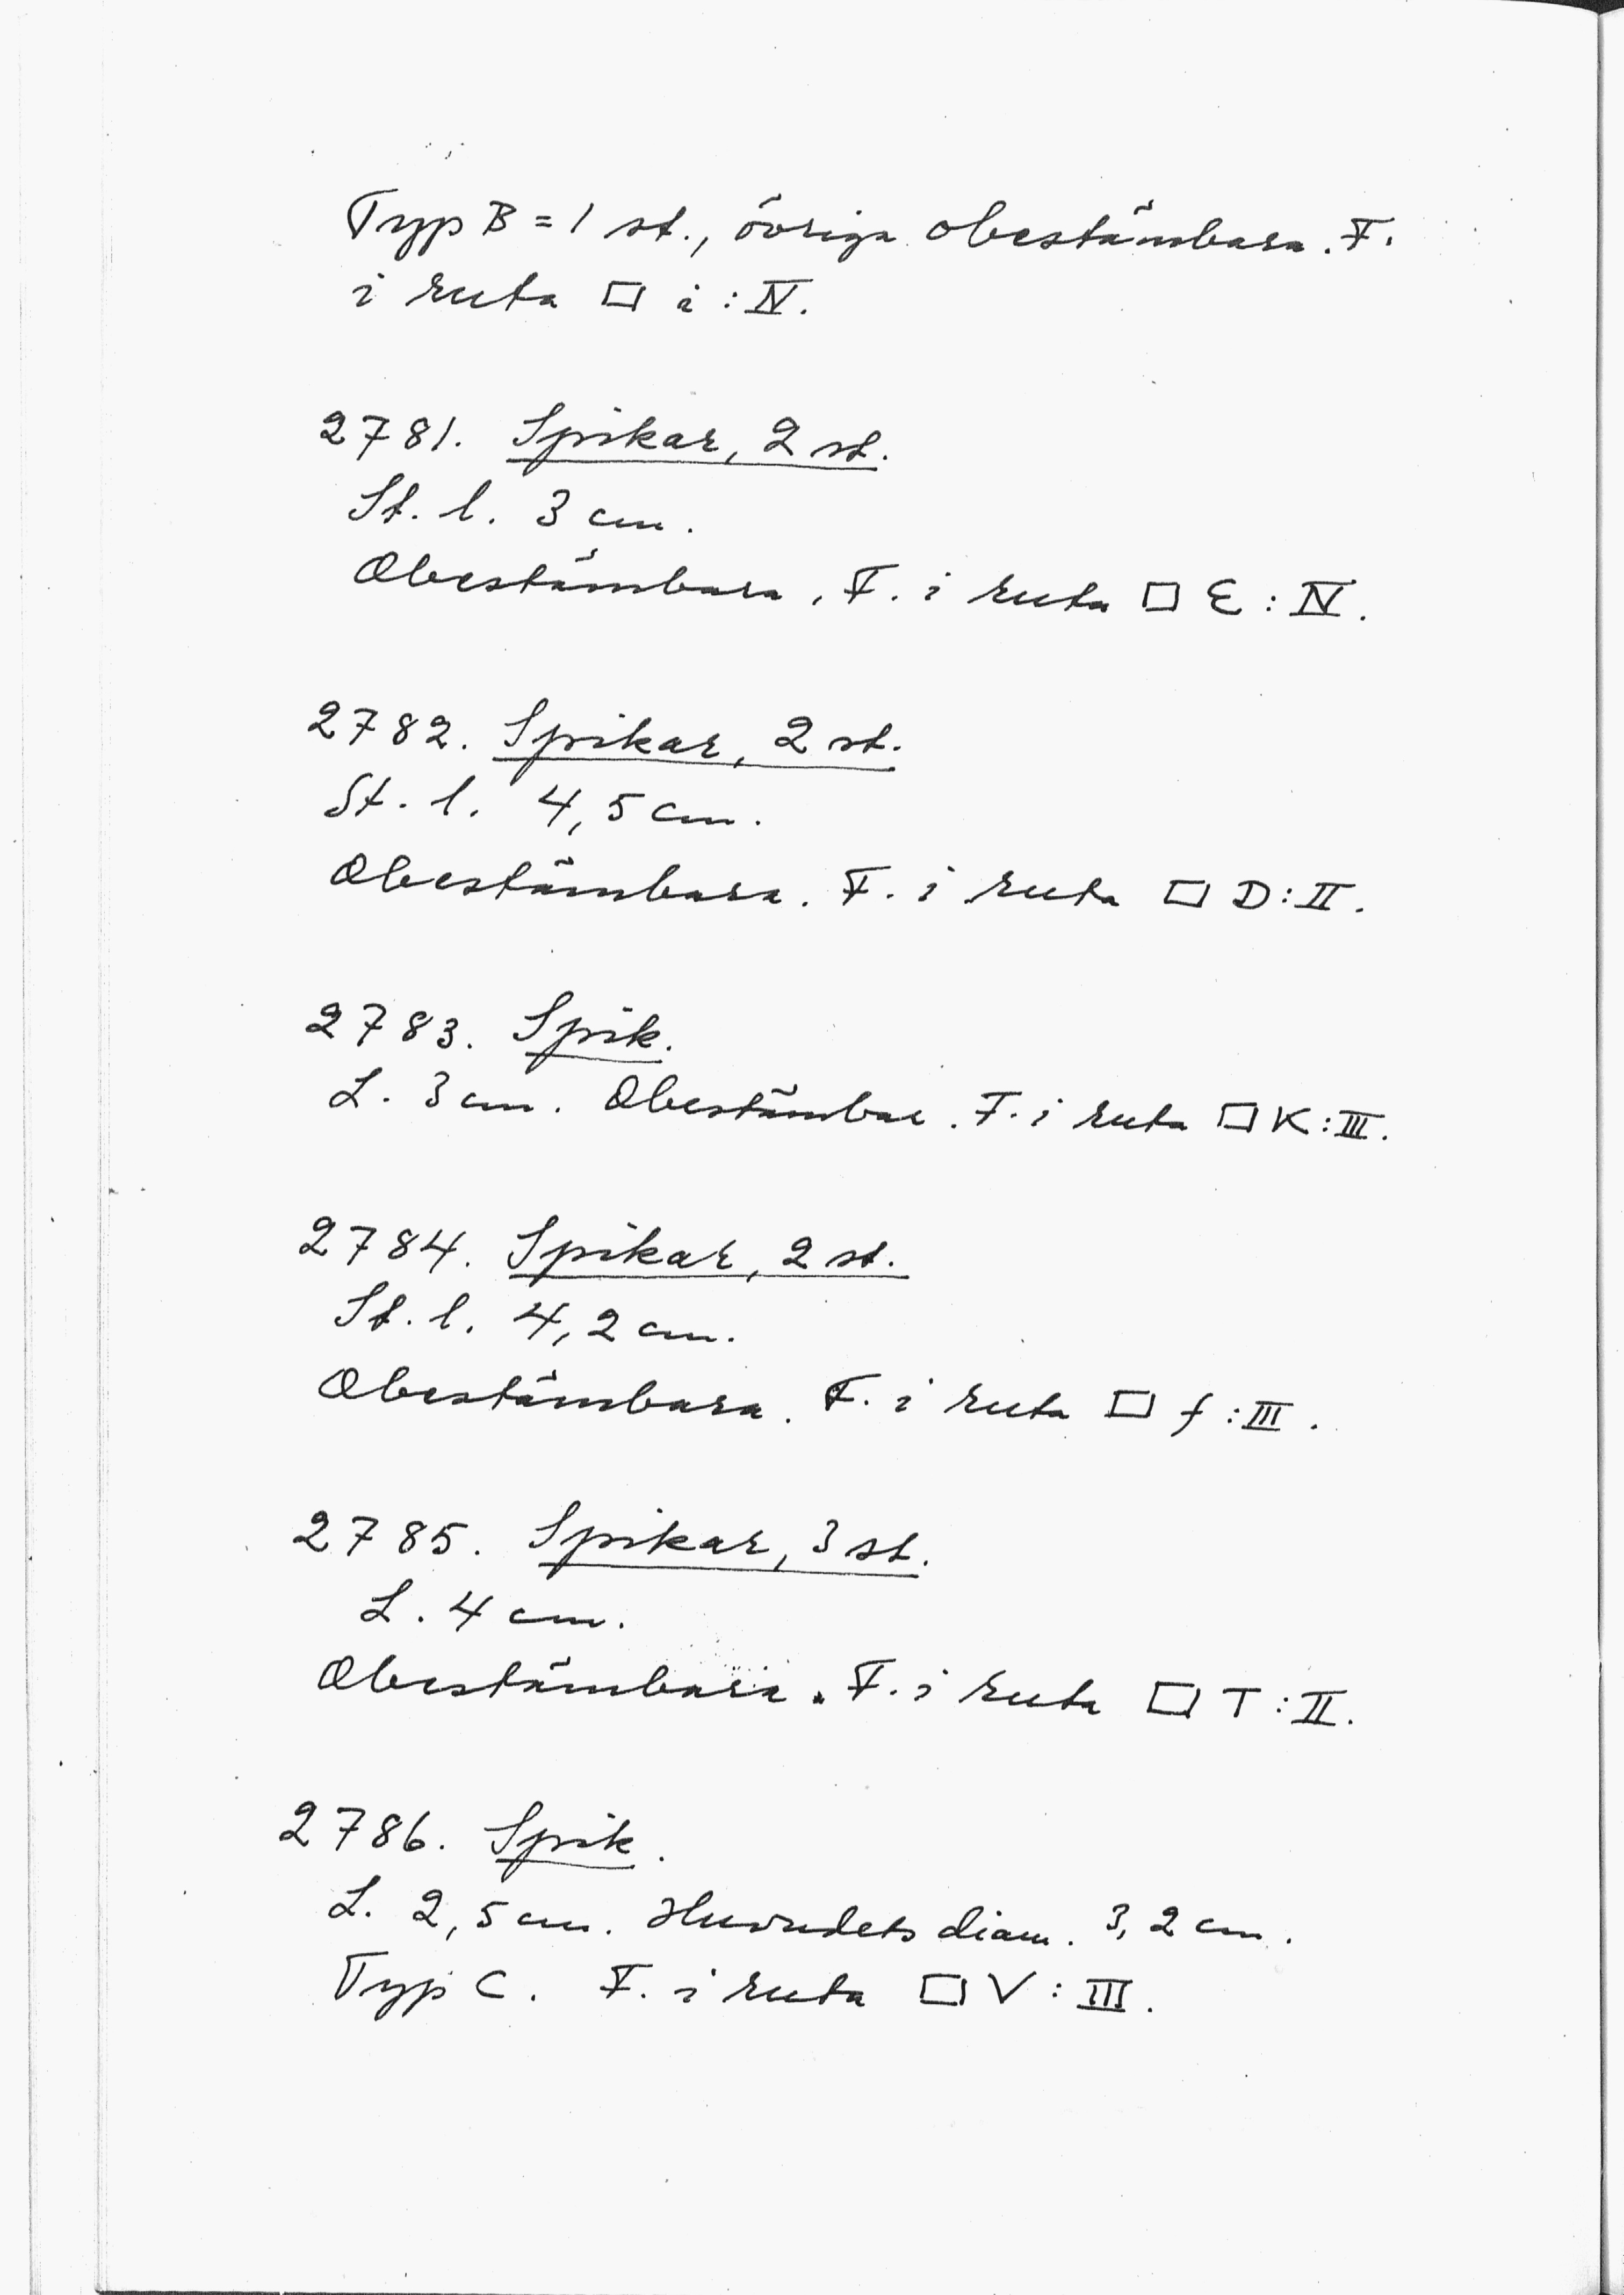 Typ B = 1 st., övriga obestämbara. F.
i ruta □ i : IV.
2781. Spikar, 2 st.
St. l. 3 cm.
Obestämbara. F. i ruta □ E : IV.
2782. Spikar, 2 st.
St. l. 4,5 cm.
Obestämbara. F. i ruta □ D : II.
2783. Spik.
L. 3 cm. Obestämbar. F. i ruta □ K : III.
2784. Spikar, 2 st.
St. l. 4,2 cm.
Obestämbara. F. i ruta □ f : III.
2785. Spikar, 3 st.
L. 4 cm.
Obestämbara. F. i ruta □ T : II.
2786. Spik.
L. 2,5 cm. Huvudets diam. 3,2 cm.
Typ C. F. i ruta □ V : III.